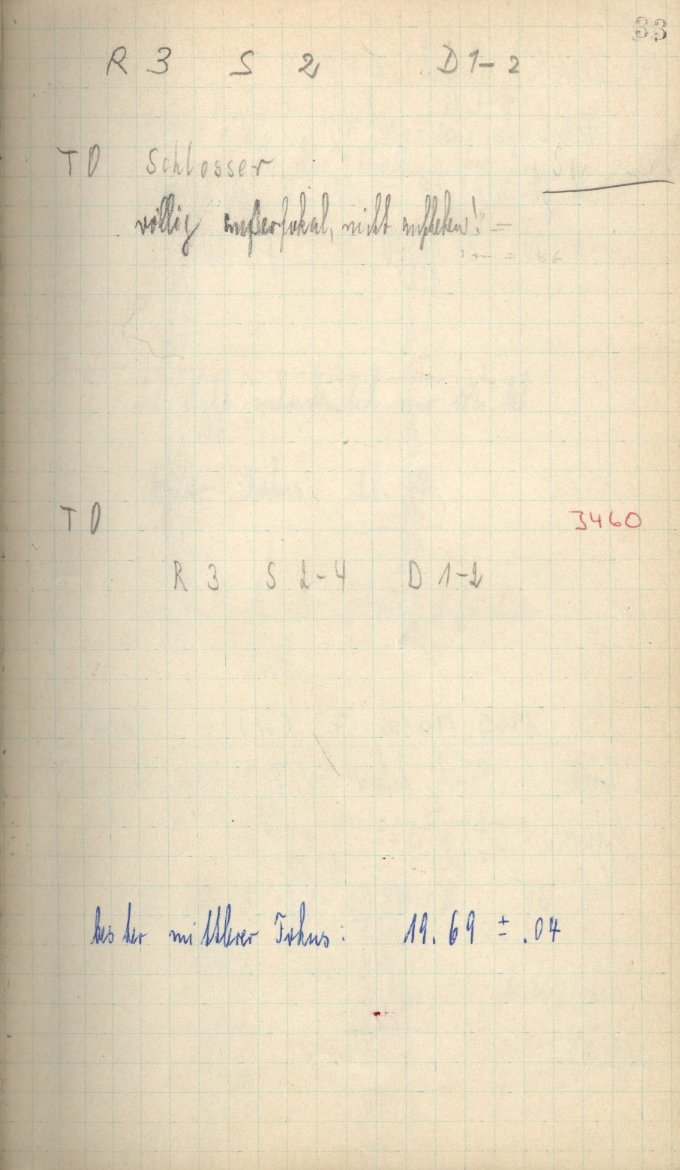 33
R 3 S 2 D 1-2
TD Schlosser
völlig außerfokal, nicht aufheben!
TD 3460
R 3 S 2-4 D 1-2
bester mittlerer Fokus: 19.69 ± .04